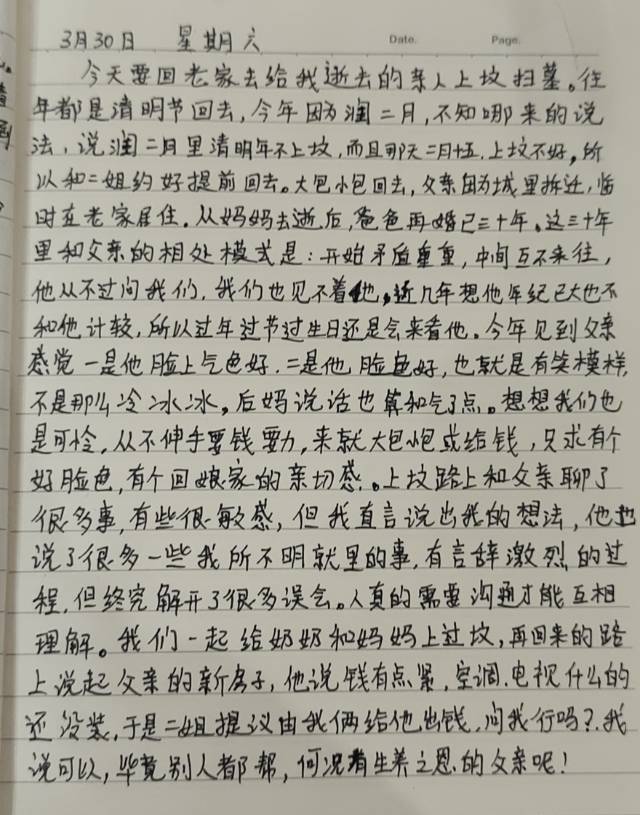 3月30日 星期六 Date. Page.
今天要回老家去给我逝去的亲人上坟扫墓。往
年都是清明节回去,今年因为润二月,不知哪来的说
法,说润二月里清明年不上坟,而且那天二月十五,上坟不好,所
以和二姐约好提前回去。大包小包回去,父亲因为城里拆迁,临
时在老家居住。从妈妈去逝后,爸爸再婚已三十年。这三十年
里和父亲的相处模式是:开始矛盾重重,中间互不来往,
他从不过问我们,我们也见不着他,近几年想他年纪已大也不
和他计较,所以过年过节过生日还是会来看他。今年见到父亲
感觉一是他脸上气色好,二是他脸色好,也就是有笑模样,
不是那么冷冰冰,后妈说话也算和气了点。想想我们也
是可怜,从不伸手要钱要力,来就大包小包或给钱,只求有个
好脸色,有个回娘家的亲切感。上坟路上和父亲聊了
很多事,有些很敏感,但我直言说出我的想法,他也
说了很多一些我所不明就里的事,有言辞激烈的过
程,但终究解开了很多误会。人真的需要沟通才能互相
理解。我们一起给奶奶和妈妈上过坟,再回来的路
上说起父亲的新房子,他说钱有点紧,空调.电视什么的
还没装,于是二姐提议由我俩给他出钱,问我行吗?我
说可以,毕竟别人都帮,何况有生养之恩的父亲呢!